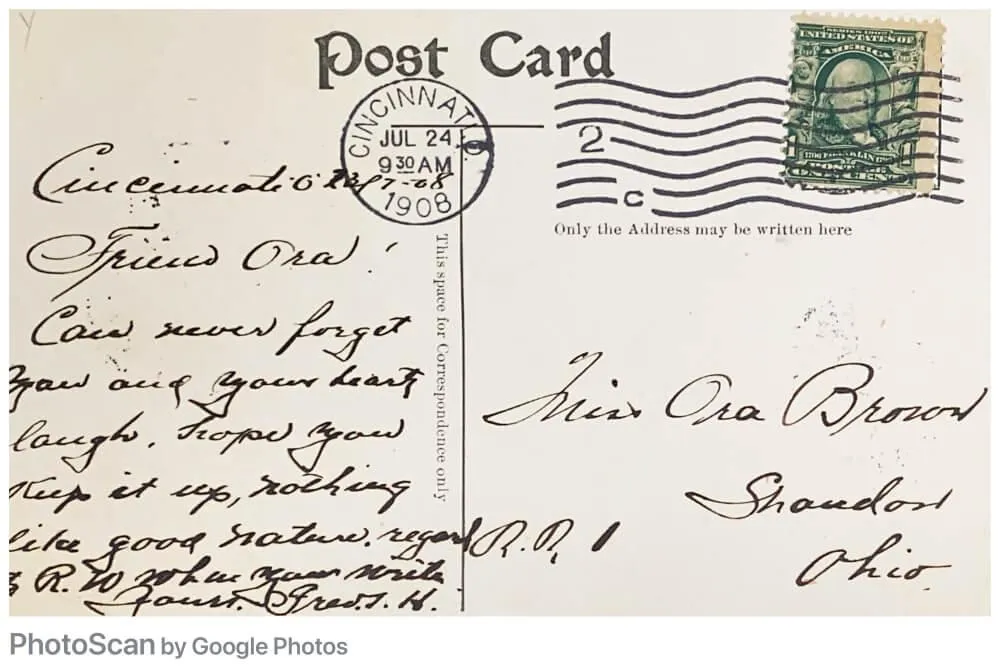 Post Card
CINCINNATI, O
JUL 24
9 30 AM
1908
2
C
SERIES 1902
UNITED STATES OF
AMERICA
FRANKLIN
POSTAGE
ONE CENT
Cincinnati O 7-08
Friend Ora
Can never forget
you and your hearty
laugh. hope you
Keep it up, nothing
like good nature. regards
R. W when you write
Yours. Fred. S. H.
This space for Correspondence only
Only the Address may be written here
Miss Ora Brown
Shandon
R. R. 1
Ohio.
PhotoScan by Google Photos